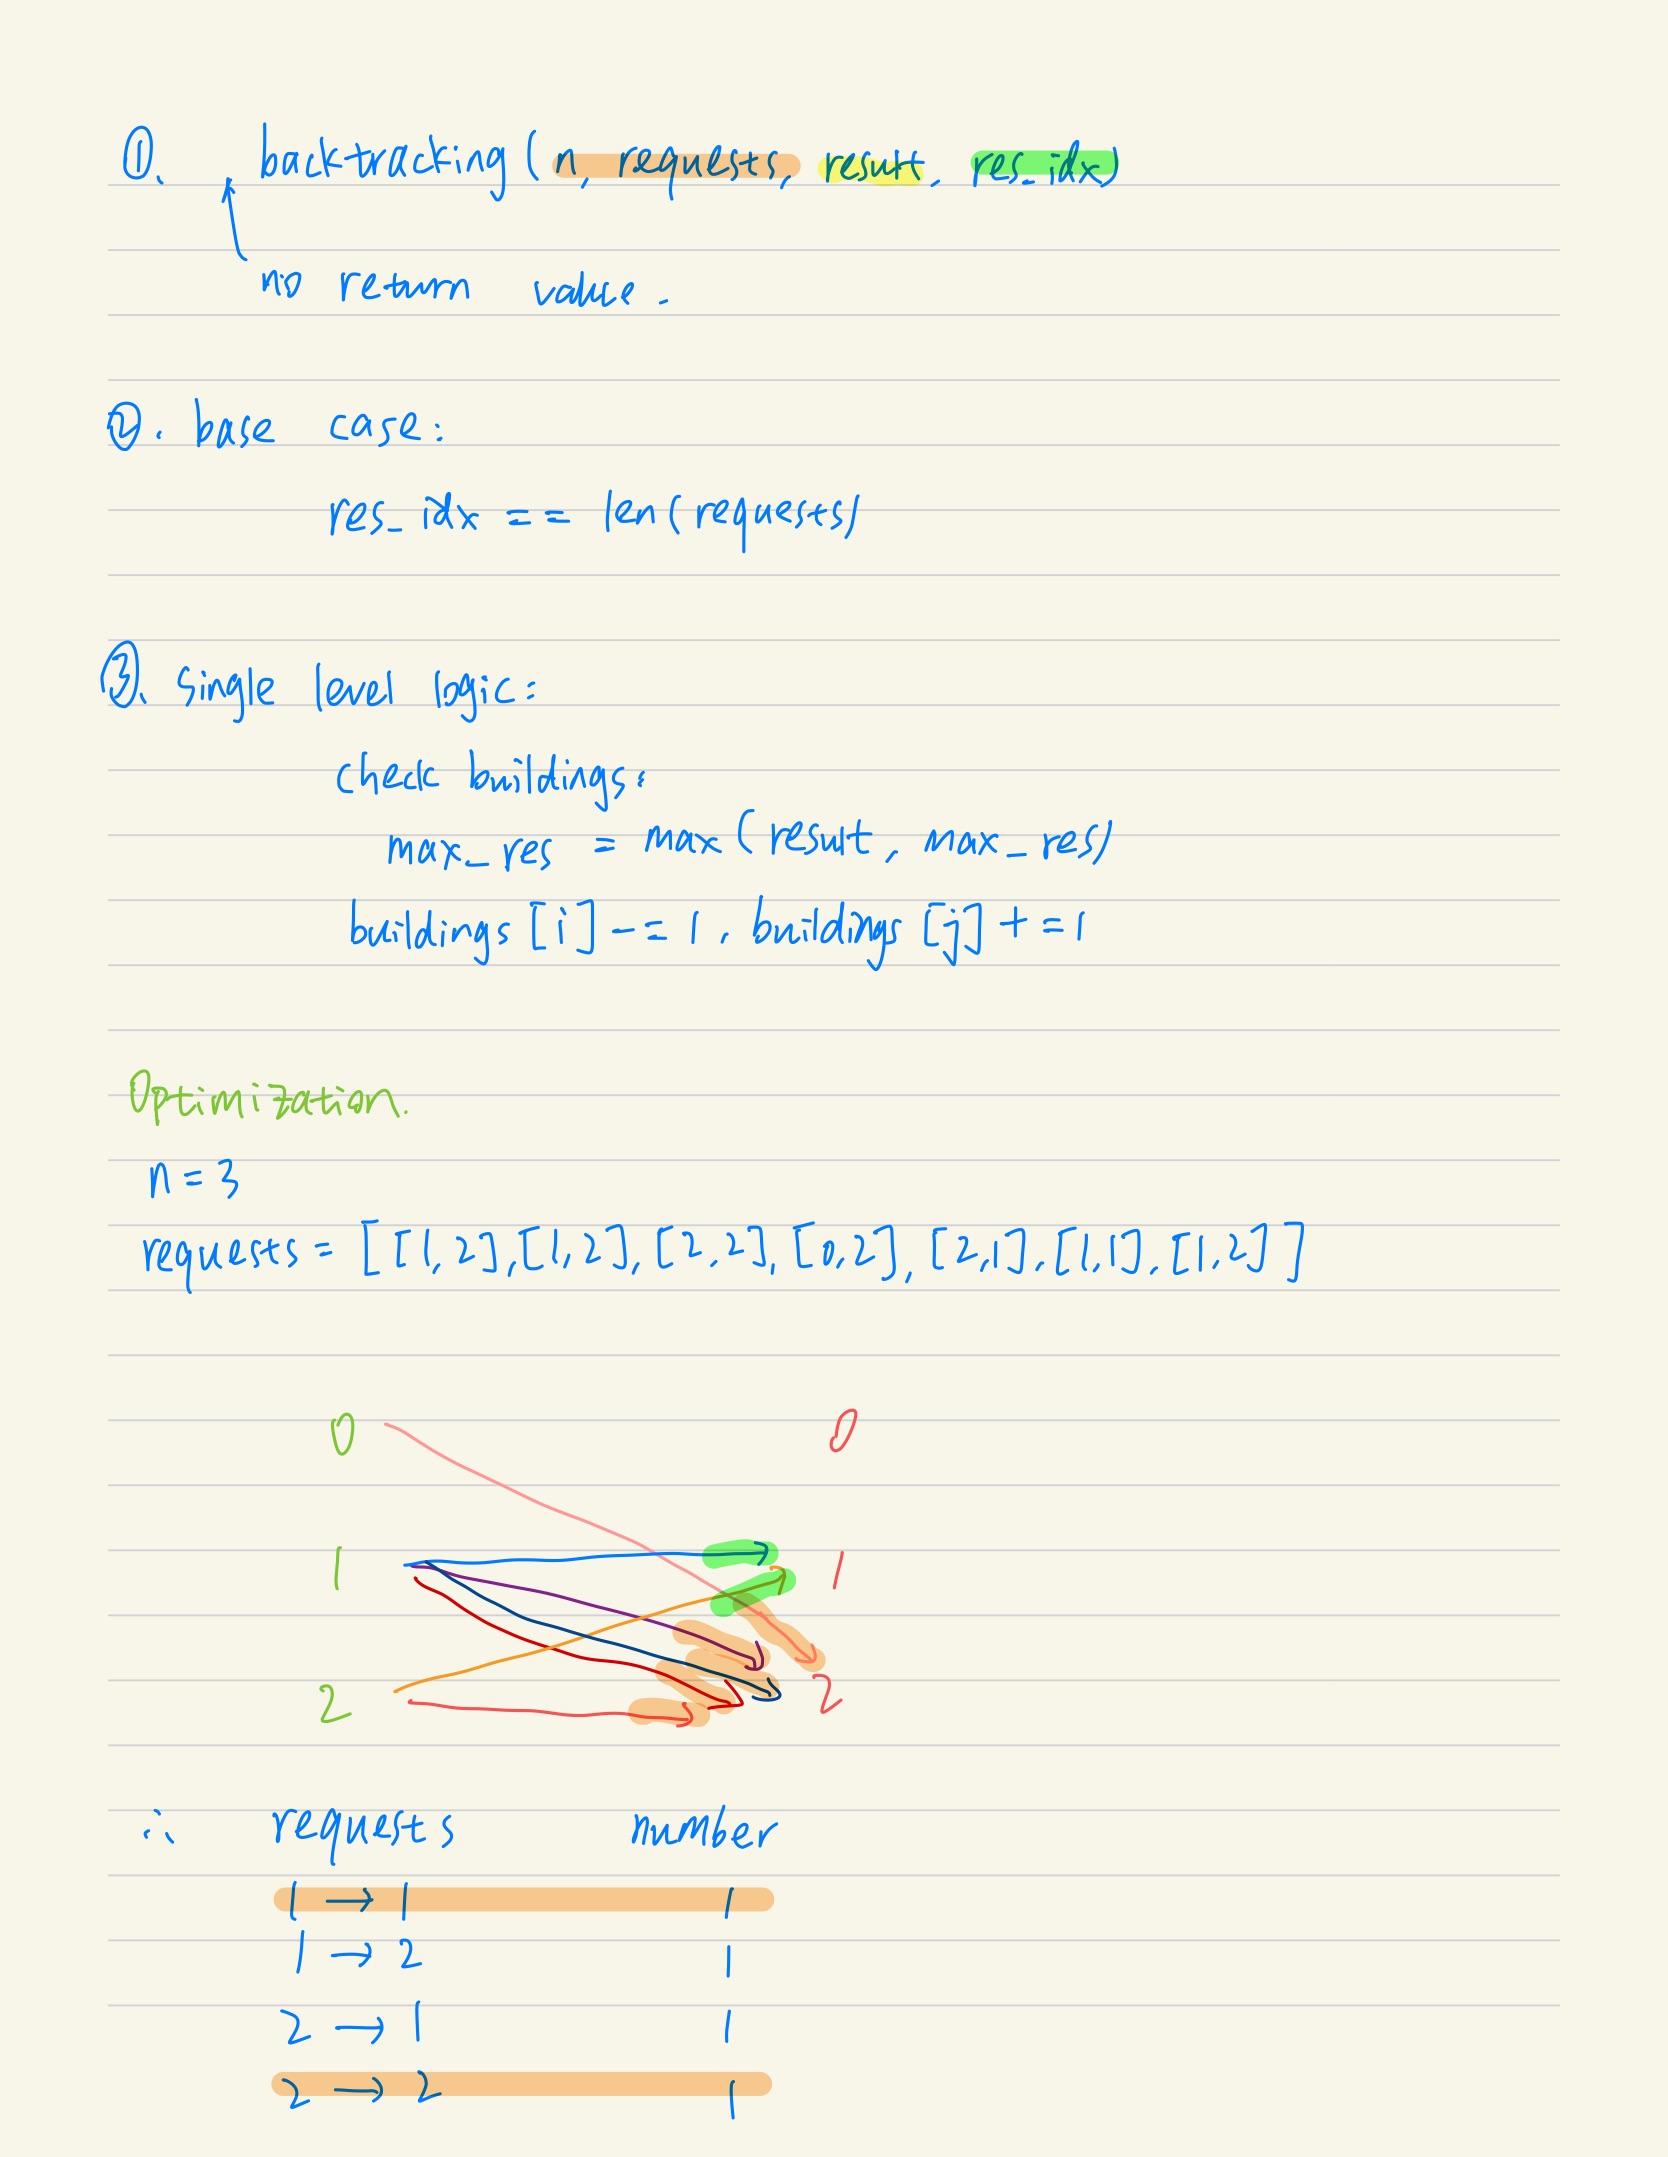 ①. backtracking(n, requests, result, res_idx)
no return value.
②. base case:
res_idx == len(requests)
③. single level logic:
check buildings:
max_res = max(result, max_res)
buildings[i] -= 1, buildings[j] += 1
Optimization.
n = 3
requests = [[1,2],[1,2],[2,2],[0,2],[2,1],[1,1],[1,2]]
0 0
1 1
2 2
∴ requests number
1 → 1 1
1 → 2 1
2 → 1 1
2 → 2 1